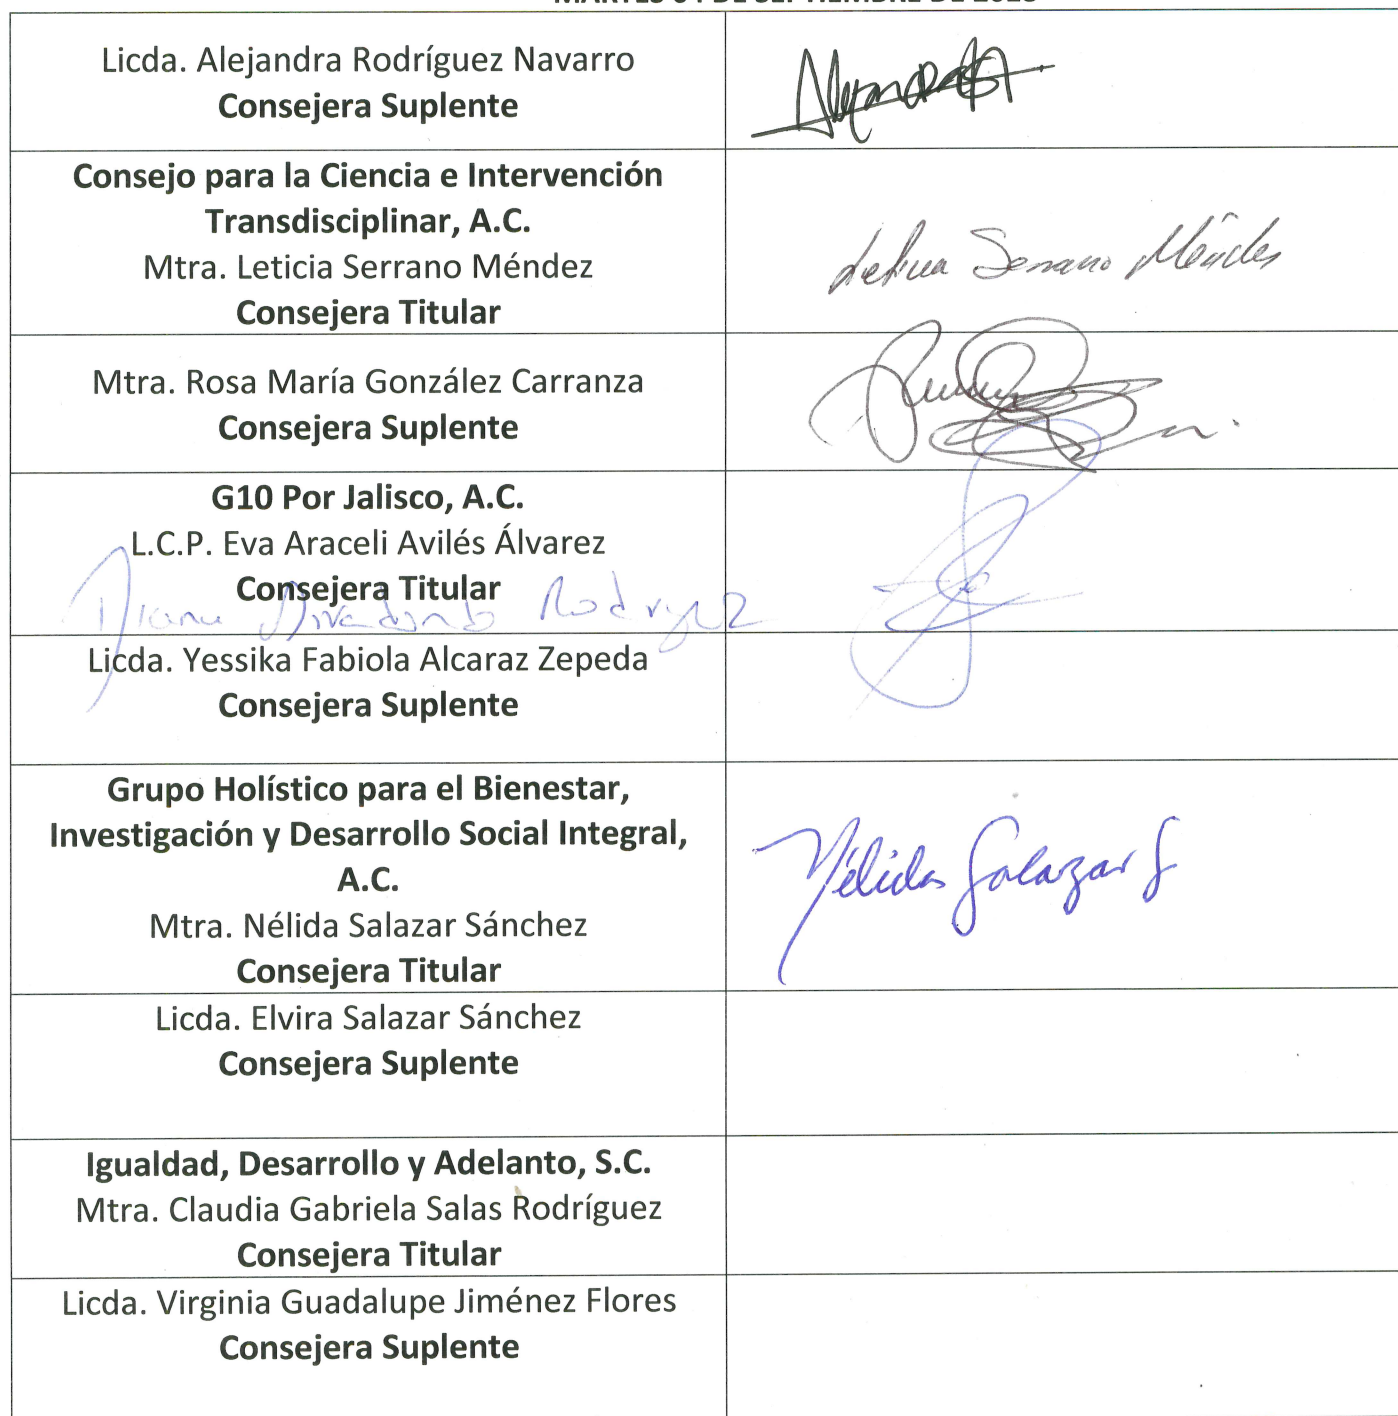 Licda. Alejandra Rodríguez Navarro
Consejera Suplente
Consejo para la Ciencia e Intervención
Transdisciplinar, A.C.
Mtra. Leticia Serrano Méndez
Consejera Titular
Leticia Serrano Méndez
Mtra. Rosa María González Carranza
Consejera Suplente
G10 Por Jalisco, A.C.
L.C.P. Eva Araceli Avilés Álvarez
Consejera Titular
Rodríguez
Licda. Yessika Fabiola Alcaraz Zepeda
Consejera Suplente
Grupo Holístico para el Bienestar,
Investigación y Desarrollo Social Integral,
A.C.
Mtra. Nélida Salazar Sánchez
Consejera Titular
Nélida Salazar S
Licda. Elvira Salazar Sánchez
Consejera Suplente
Igualdad, Desarrollo y Adelanto, S.C.
Mtra. Claudia Gabriela Salas Rodríguez
Consejera Titular
Licda. Virginia Guadalupe Jiménez Flores
Consejera Suplente